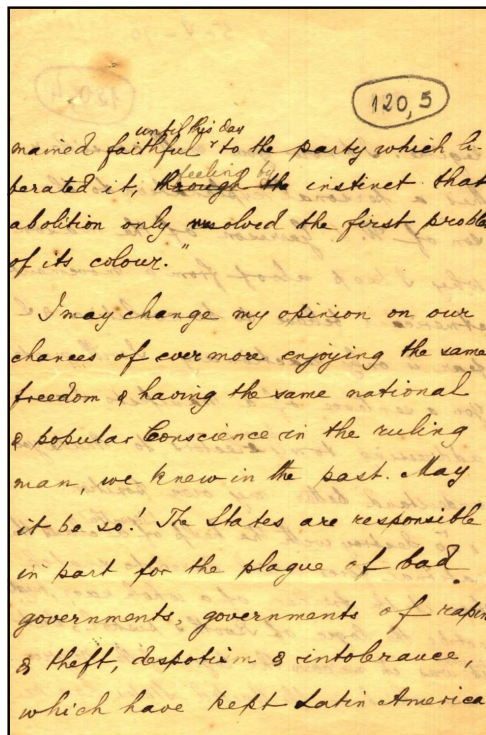 120,5
until this day
mained faithful to the party which li-
feeling by
berated it, through the instinct that
abolition only resolved the first proble
of its colour."
I may change my opinion on our
chances of evermore enjoying the same
freedom & having the same national
& popular Conscience in the ruling
man, we knew in the past. May
it be so! The States are responsible
in part for the plague of bad
governments, governments of rapin
& theft, despotism & intolerance,
which have kept Latin America